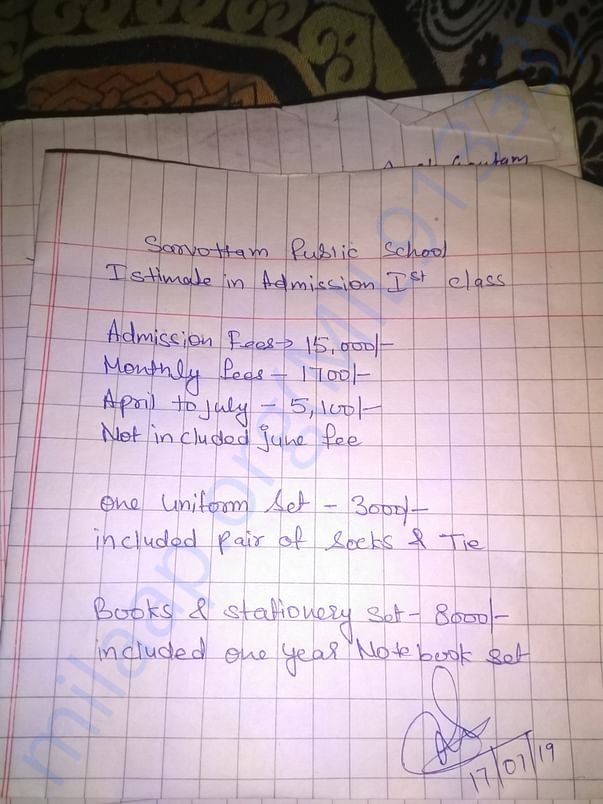 Gautam
Sarvottam Public School
Istimate in Admission Ist class
Admission Fees→ 15,000/-
Monthly fees - 1700/-
April to july - 5,100/-
Not included june fee
One Uniform Set - 3000/-
included pair of Socks & Tie
Books & stationery set - 8000/-
included one year Notebook set
17/07/19
milaap.org/MIL_9133